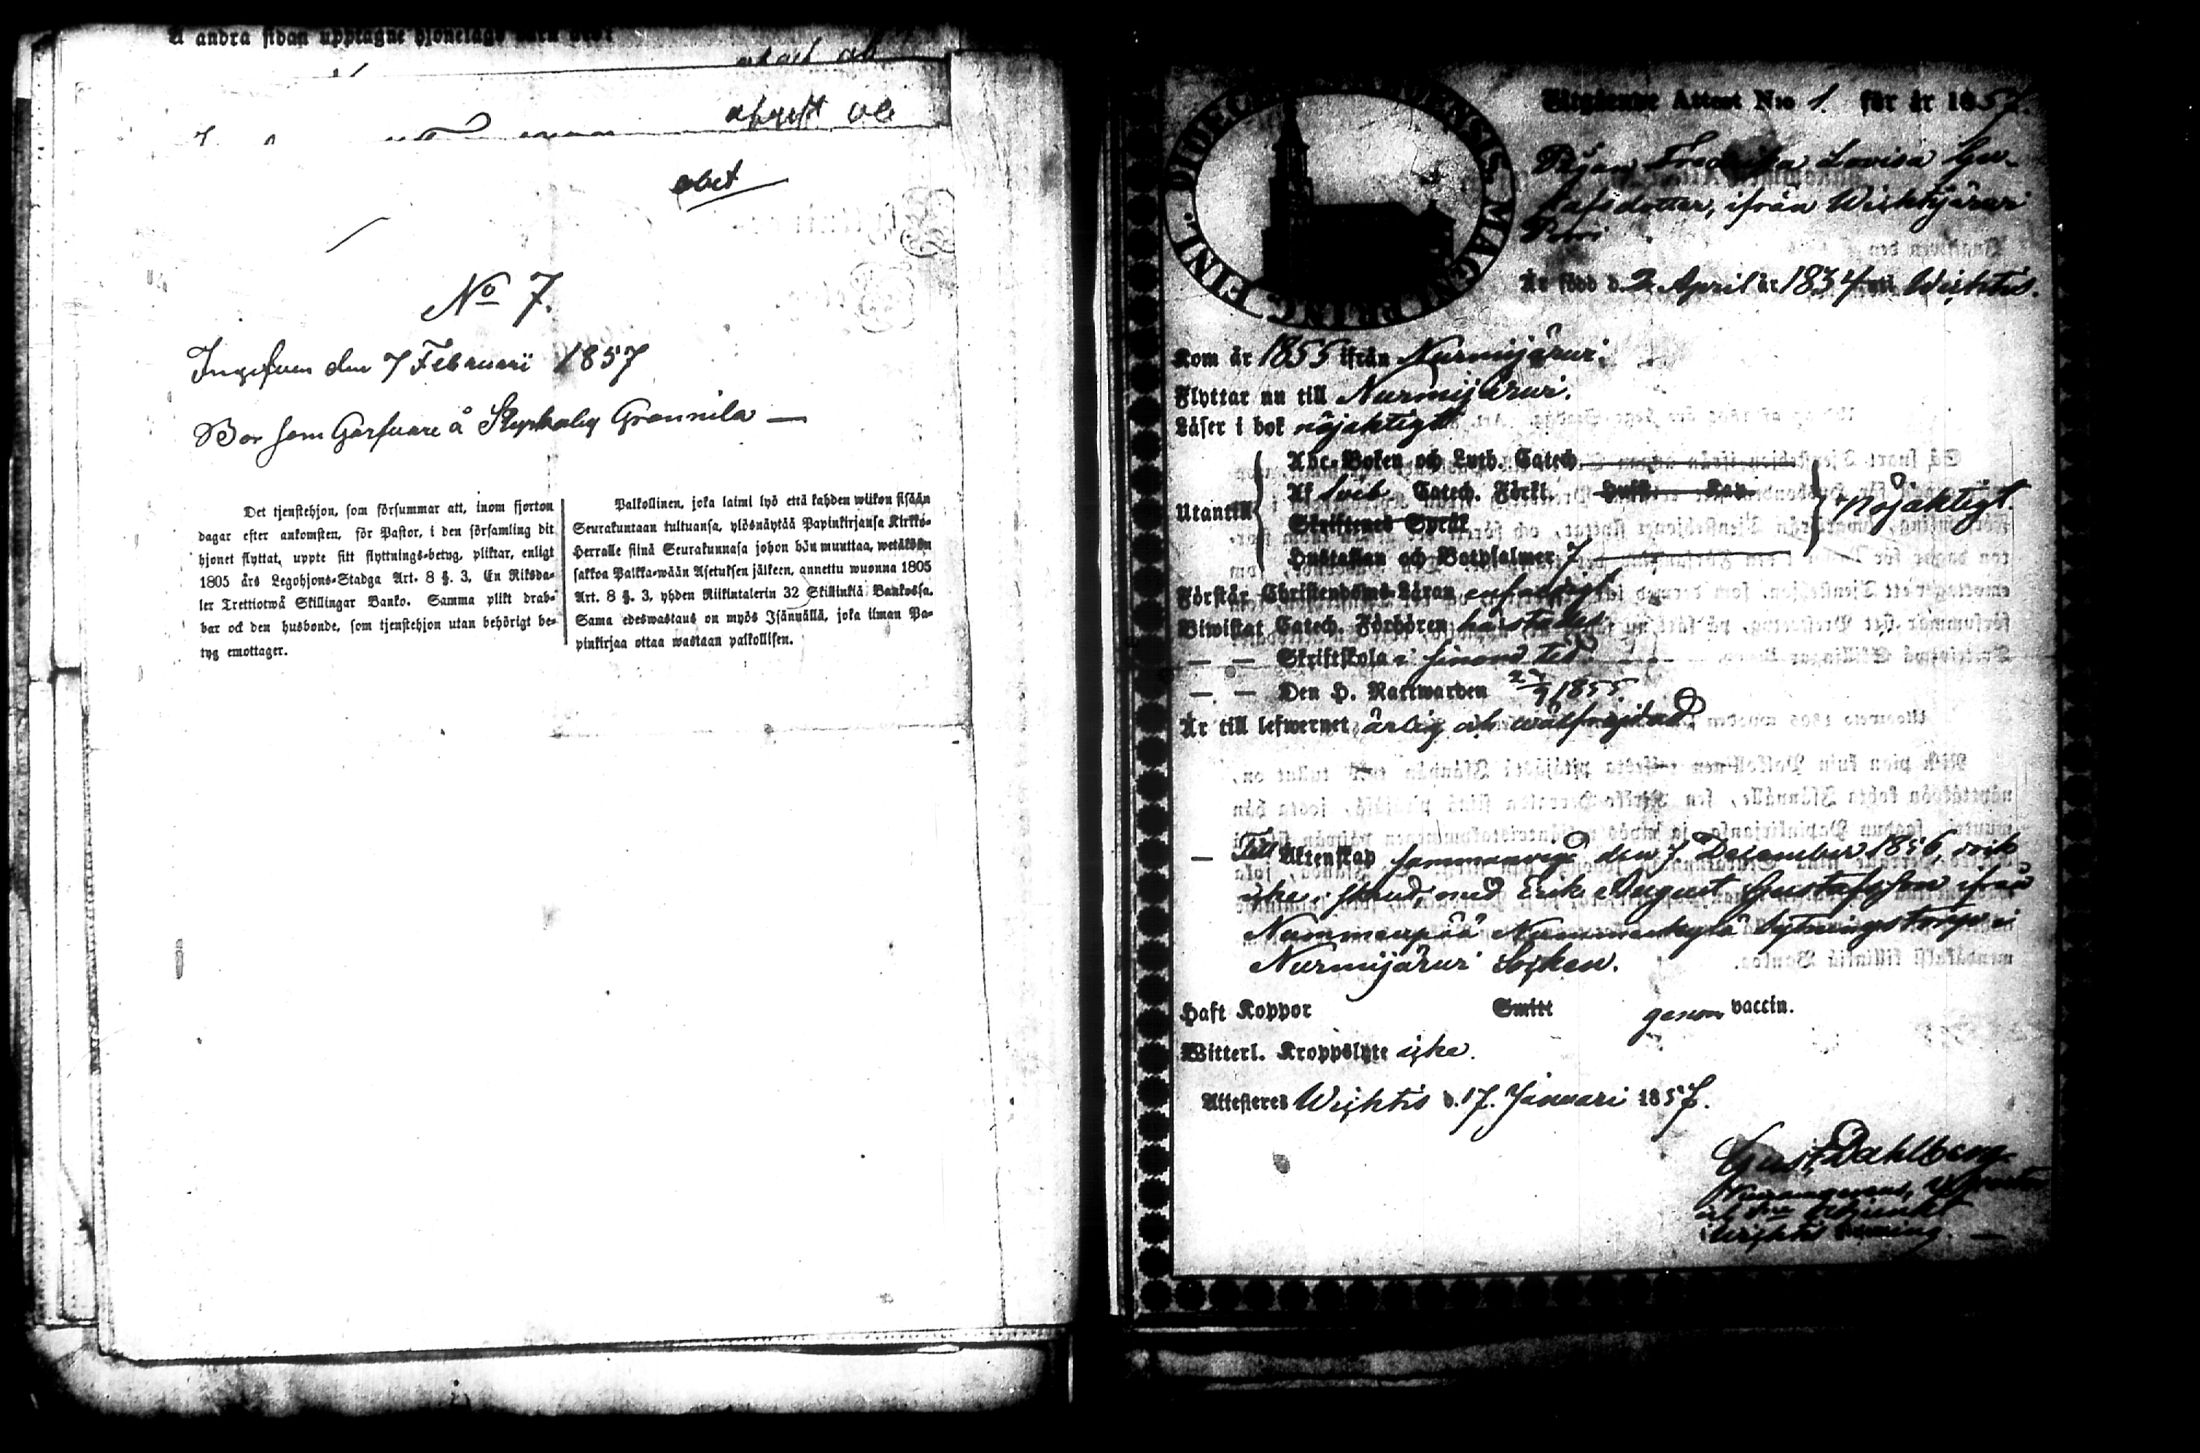 Å andra sidan upptagne hjonelags
obet
No 7.
den 7 Februarii 1857
Bor som å Gronnila
Det tjenstehjon, som försummar att, inom fjorton
dagar efter ankomsten, för Pastor, i den församling dit
hjonet flyttat, uppte sitt flyttnings-betyg, pliktar, enligt
1805 års Legohjons-Stadga Art. 8 §. 3, En Riksda-
ler Trettiotwå Skillingar Banko. Samma plikt drab-
bar ock den husbonde, som tjenstehjon utan behörigt be-
tyg emottager.
Palkollinen, joka laimi lyö että kahden wiikon sisään
Seurakuntaan tultuansa, ylösnäyttää Papinkirjansa Kirkko-
Herralle siinä Seurakunnasa johon hän muuttaa, wetäköön
sakkoa Palkka-wään Asetuksen jälkeen, annettu wuonna 1805
Art. 8 §. 3, yhden Riikintalerin 32 Skillinkiä Bankossa.
Sama edeswastaus on myös Isännällä, joka ilman Pa-
pinkirjaa ottaa wastaan palkollisen.
FINL. MAGNI PRINC.
Utgående Attest N:o 1. för år 1857.
Pigan Fredrika Lovisa Gu-
stafsdotter, ifrån Wichtijärvi
Är född d. 2 April år 1834 uti Wichtis.
Kom år 1855 ifrån Nurmijärvi.
Flyttar nu till Nurmijärvi.
Läser i bok nöjaktigt
Utantill
Abc-Boken och Luth. Catech.
Af Sveb. Catech. Förkl. Hust. Tav.
Skriftenes Språk
Hustaflan och Botpsalmer 7
nöjaktigt.
Förstår Christendoms-Läran enfaldigt
Biwistat Catech. Förhören härstädes
— — Skriftskola i sinom tid.
— — Den H. Nattwarden 27/9 1855.
Är till lefwernet ärlig och wälfrejdad
— Till Äktenskap sammanvigd den 7 December 1856,
med Erik August Gustafsson ifrån
Nummenpää i
Nurmijärvi Socken.
Haft Koppor Smitt genom vaccin.
Witterl. Kroppslyte icke.
Attesteres Wichtis d. 17. Januari 1857.
Gust. Dahlberg
Adjunkt